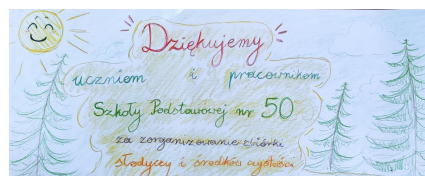 Dziękujemy
uczniom i pracownikom
Szkoły Podstawowej nr 50
za zorganizowanie zbiórki
słodyczy i środków czystości